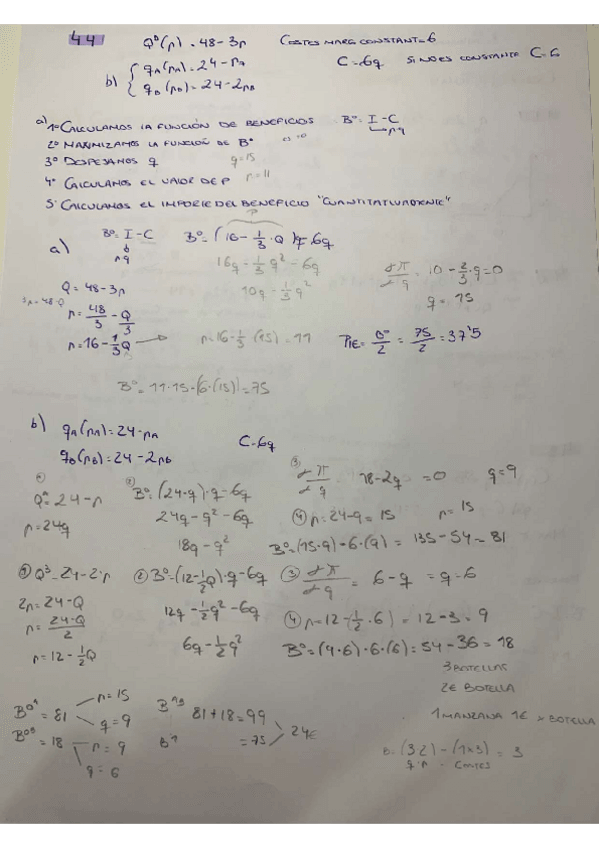 44 Q^D(p) = 48 - 3p COSTES MARG CONSTANT = 6
C = 6q SI NO ES CONSTANTE C = 6
b) { qA(pA) = 24 - pA
qB(pB) = 24 - 2pB
a) 1º CALCULAMOS LA FUNCIÓN DE BENEFICIOS Bº = I - C
p·q
2º MAXIMIZAMOS LA FUNCIÓN DE Bº
3º DOPEJAMOS q q = 15
4º CALCULAMOS EL VALOR DE P p = 11
5º CALCULAMOS EL IMPORTE DEL BENEFICIO "CUANTITATIVAMENTE"
a) Bº = I - C Bº = (16 - 1/3 · Q) q - 6q
p·q
16q - 1/3 q² - 6q
10q - 1/3 q²
∂π/∂q = 10 - 2/3 · q = 0
q = 15
Q = 48 - 3p
3p = 48 - Q
p = 48/3 - Q/3
p = 16 - 1/3 Q → p = 16 - 1/3 (15) = 11
Bº/2 = 75/2 = 37'5
Bº = 11·15 - (6·(15)) = 75
b) qA(pA) = 24 - pA
qB(pB) = 24 - 2pB
C = 6q
① Q^A = 24 - p
p = 24q
② Bº = (24 - q) · q - 6q
24q - q² - 6q
18q - q²
③ ∂π/∂q = 18 - 2q = 0 q = 9
④ p = 24 - q = 15 p = 15
Bº = (15·9) - 6·(9) = 135 - 54 = 81
① Q^B = 24 - 2p
2p = 24 - Q
p = 24 - Q / 2
p = 12 - 1/2 Q
② Bº = (12 - 1/2 Q) · q - 6q
12q - 1/2 q² - 6q
6q - 1/2 q²
③ ∂π/∂q = 6 - q = q = 6
④ p = 12 - (1/2 · 6) = 12 - 3 = 9
Bº = (9·6) - 6·(6) = 54 - 36 = 18
3 BOTELLAS
2€ BOTELLA
1 MANZANA 1€ x BOTELLA
B = (3·2) - (1x3) = 3
q·p - COSTES
Bº^A = 81 p = 15
q = 9
Bº^B = 18 p = 9
q = 6
81 + 18 = 99
= 75 24€